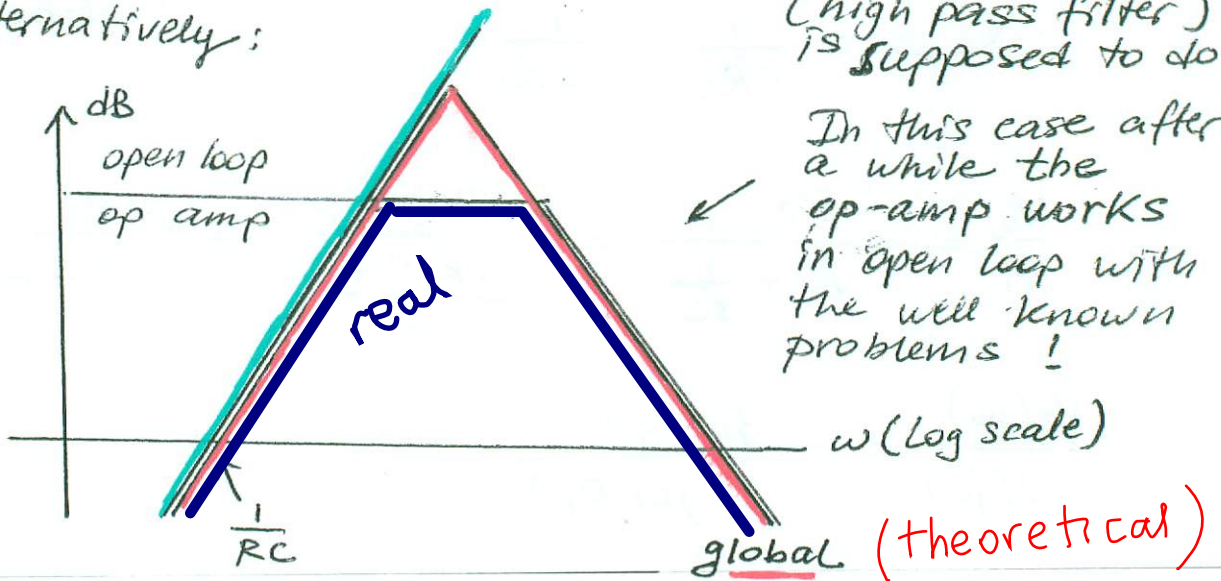 ternatively:
(high pass filter)
is supposed to do
dB
open loop
op amp
real
In this case after
a while the
op-amp works
in open loop with
the well known
problems !
ω (Log scale)
1
RC
global (theoretical)